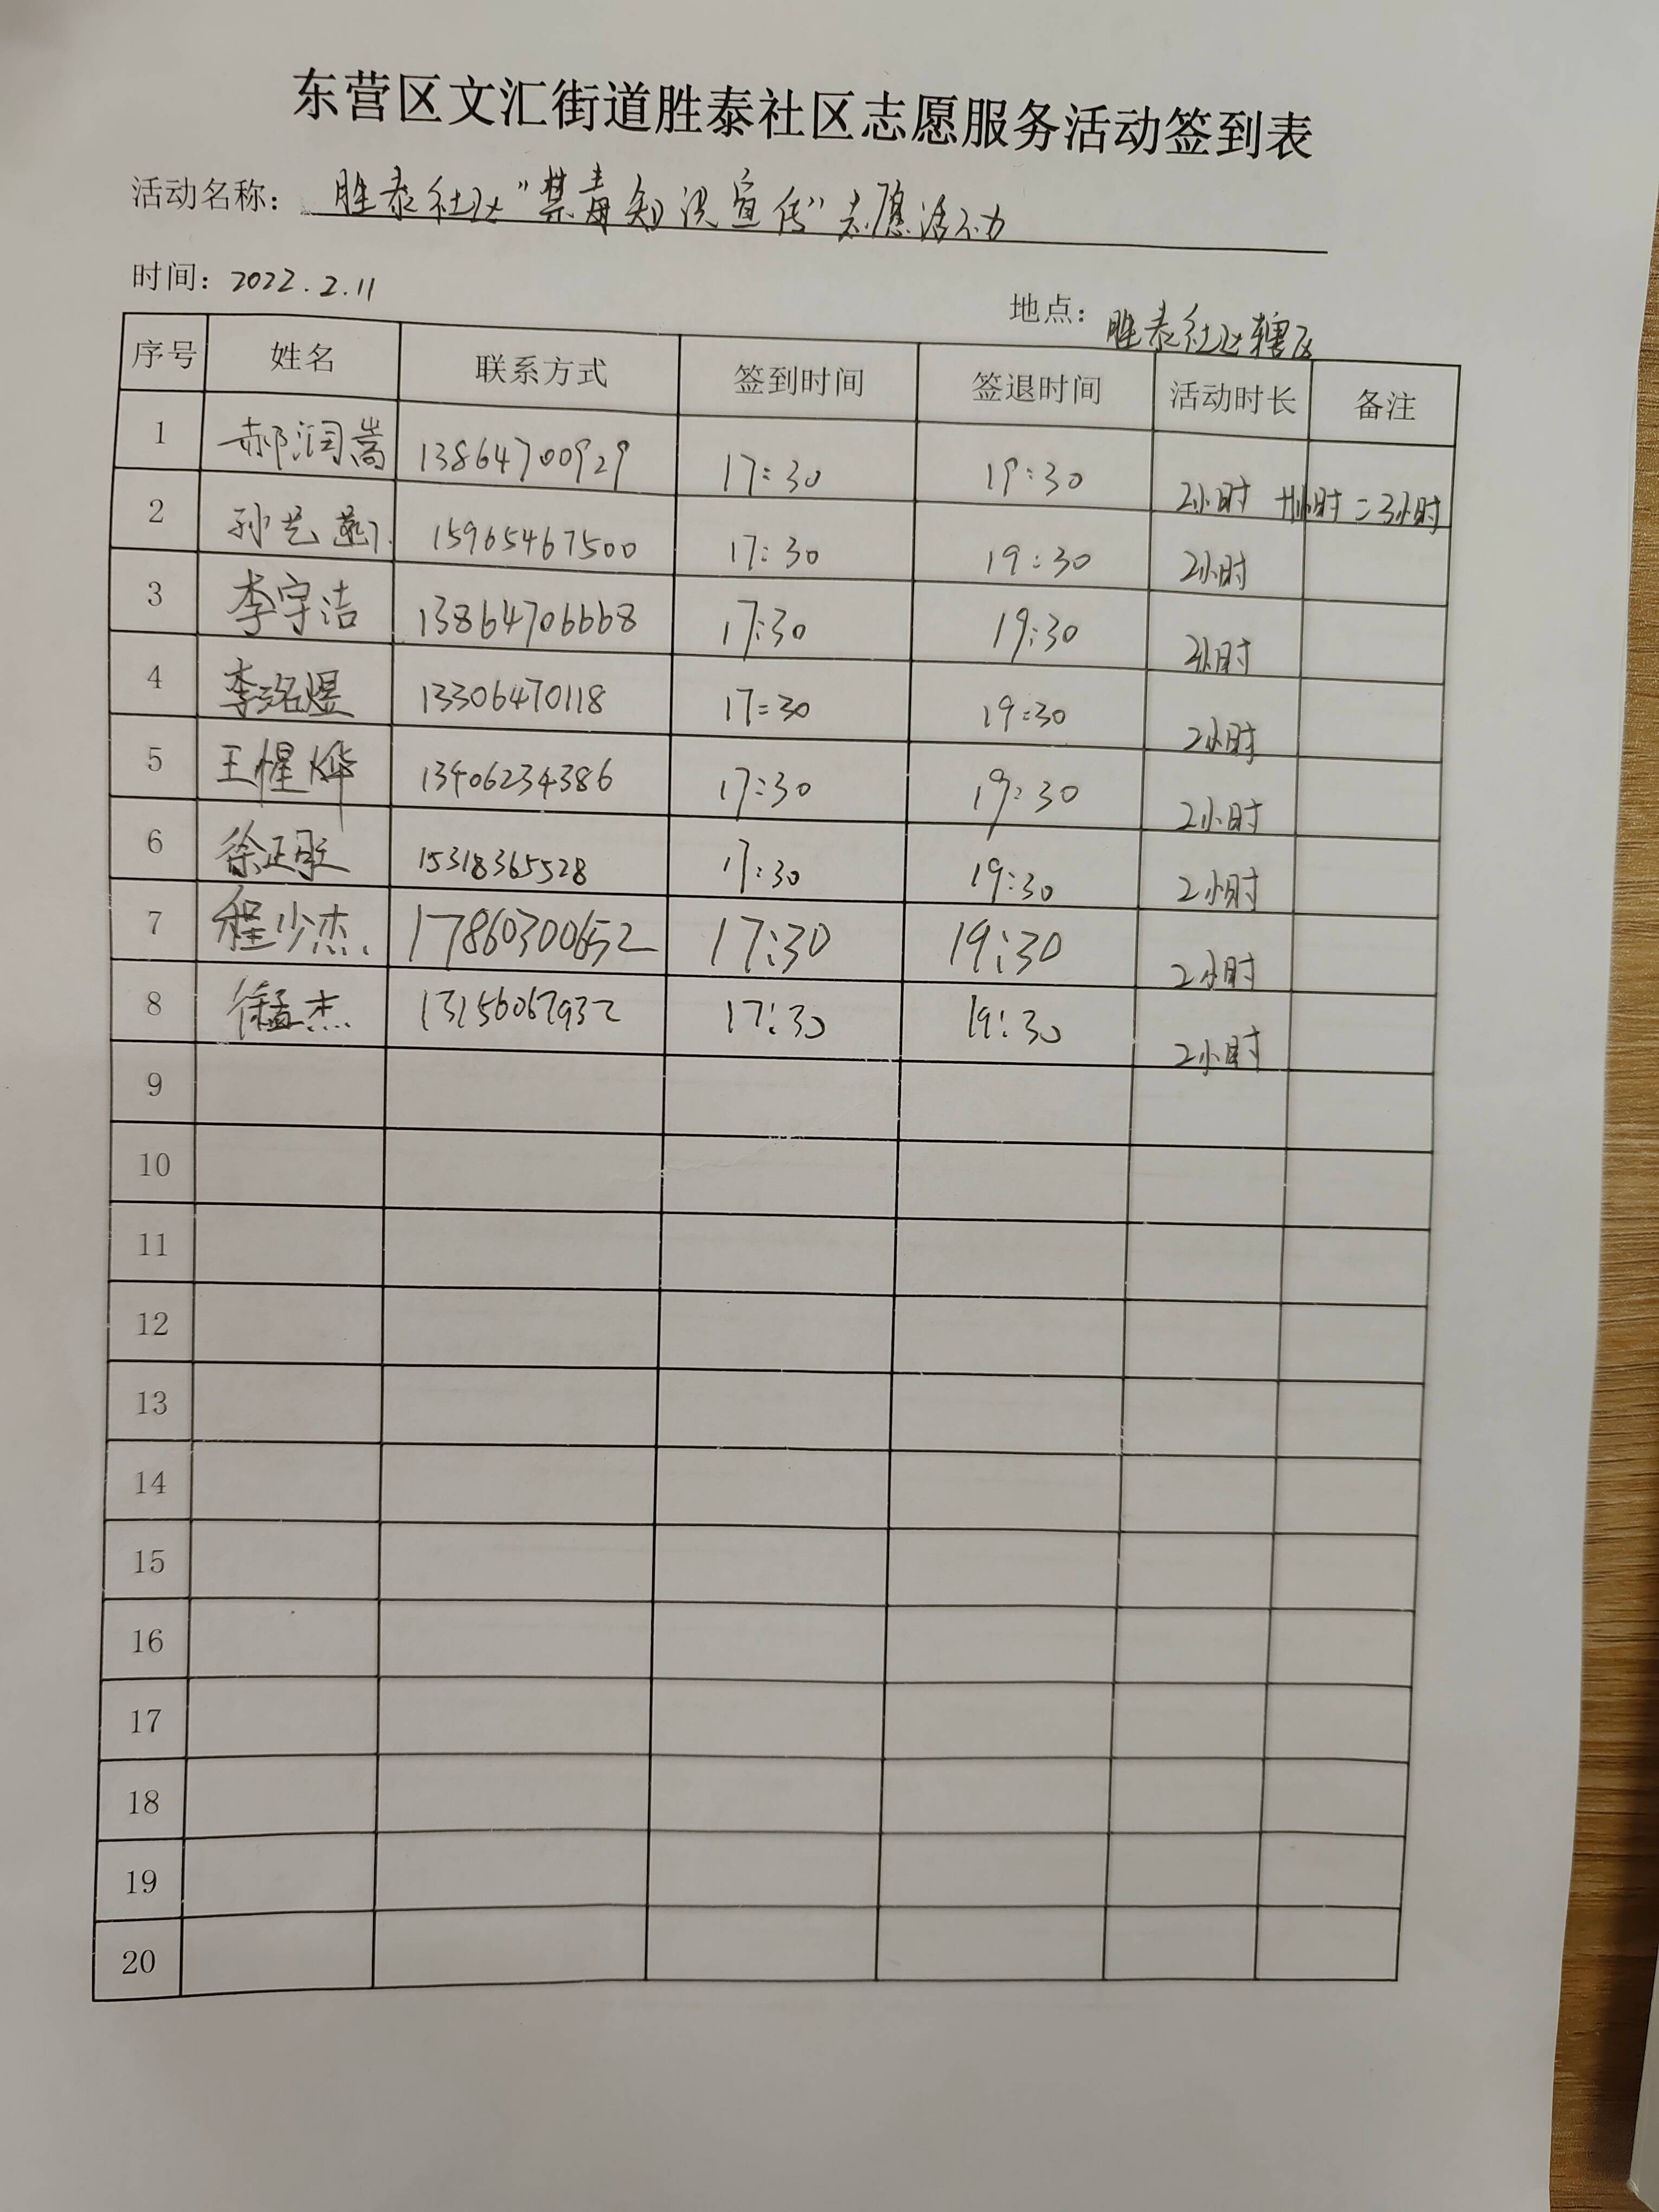 东营区文汇街道胜泰社区志愿服务活动签到表
活动名称: 胜泰社区“禁毒知识宣传”志愿活动
时间: 2022.2.11 地点: 胜泰社区辖区
序号 姓名 联系方式 签到时间 签退时间 活动时长 备注
1 郝润嵩 13864700929 17:30 19:30 2小时 +1小时=3小时
2 孙艺 15965467500 17:30 19:30 2小时
3 李宇洁 13864706668 17:30 19:30 2小时
4 李洺煜 13306470118 17:30 19:30 2小时
5 王惺烨 13406234386 17:30 19:30 2小时
6 徐正 15318365528 17:30 19:30 2小时
7 程少杰 17860300652 17:30 19:30 2小时
8 徐孟杰 13156067932 17:30 19:30 2小时
9
10
11
12
13
14
15
16
17
18
19
20